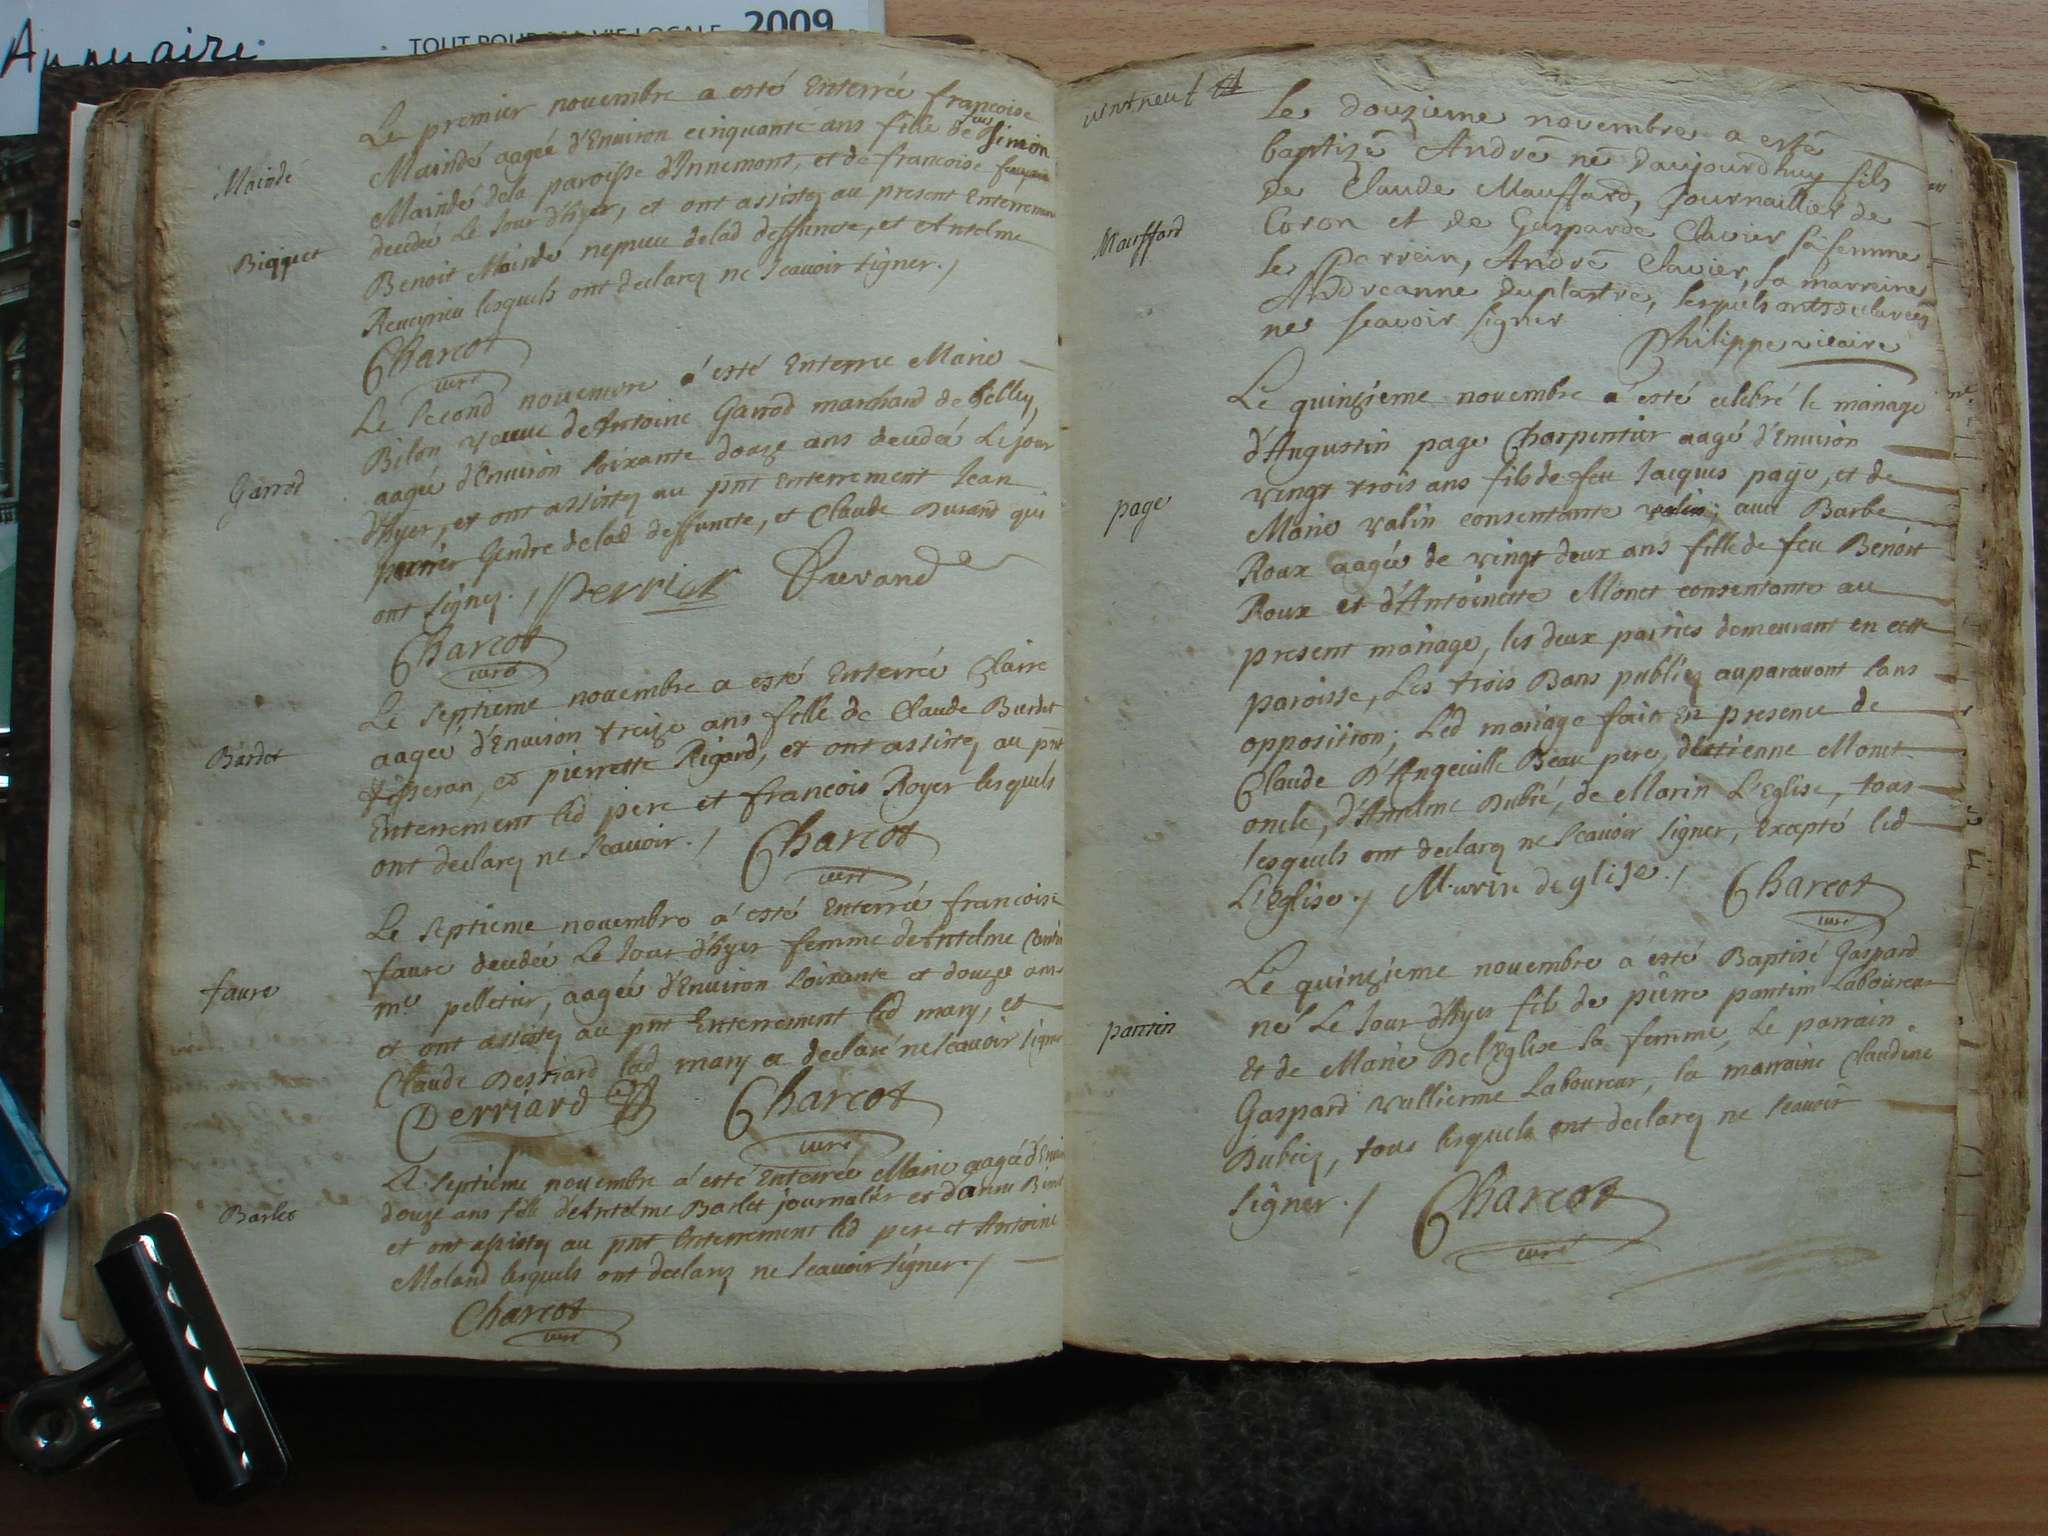 Annuaire
TOUT POUR MA VIE LOCALE 2009
Le premier novembre a esté Enterrée francoise
Maindé aagée d'Environ cinquante ans fille de feu Simon
Maindé
Maindé dela paroisse d'Innemont, et de francoise
decedée Le Jour d'hyer, et ont assistez au present Enterrement
Biqquet
Benoit Maindé nepveu delad deffuncte, et Antelme
lesquels ont declarez ne Scavoir Signer./
Charcot
curé
Le Second novembre a esté Enterrée Marie
Bilon veuve de Antoine Garrod marchand de Belley,
aagée d'Environ Soixante douze ans decedée Le jour
Garrod
d'hyer, et ont assistez au pnt Enterrement Jean
perrier Gendre delad deffuncte, et Claude Durand qui
ont Signez./ Perrier Durand
Charcot
curé
Le Septieme novembre a esté Enterrée Claire
aagée d'Environ treize ans fille de Claude Burdet
Burdet
tisseran, et pierrette Rigard, et ont assistez au pnt
Enterrement led pere et francois Royer lesquels
ont declarez ne Scavoir./ Charcot
curé
Le Septieme novembre a esté Enterrée francoise
faure decedée Le Jour d'hyer femme de Antelme
faure
me pelletier, aagée d'Environ Soixante et douze ans
et ont assistez au pnt Enterrement led mary, et
Claude Derriard led mary a declaré ne Scavoir Signer
Derriard Charcot
curé
Le Septieme novembre a esté Enterrée Marie aagée d'Envi
douze ans fille d'Antelme Barlet journalier et d'anne
Barlet
et ont assistez au pnt Enterrement led pere et Antoine
Moland lesquels ont declarez ne Scavoir Signer./
Charcot
curé
vint neuf
Le douzieme novembre a esté
baptizé André né daujourdhuy fils
de Claude Mauffard, Journaillier de
Mauffard
Coron et de Gasparde Clavier sa femme
le Parrein, André Clavier, la marreine
Andreanne duplastre, lesquels ont declarées
ne scavoir signer Philippe vicaire
Le quinzieme novembre a esté celebré le mariage
d'Augustin page Charpentier aagé d'Environ
vingt trois ans fils de feu Jacques page, et de
page
Marie valin consentante, avec Barbe
Roux aagée de vingt deux ans fille de feu Benoit
Roux et d'Antoinette Monet consentante au
present mariage, les deux parties demeurant en cette
paroisse, Les trois Bans publiez auparavant Sans
opposition; Led mariage fait En presence de
Claude D'Angeville Beau pere, d'Estienne Monet
oncle, d'Antelme Dubié, de Marin L'Eglise, tous
lesquels ont declarez ne Scavoir Signer, Excepté led
L'Eglise./ Murin de glise./ Charcot
curé
Le quinzieme novembre a esté Baptisé Gaspard
né Le Jour d'hyer fils de pierre pantin Laboureur
pantin
Et de Marie Del'Eglise sa femme, Le parrain
Gaspard vullierme Laboureur, la marraine Claudine
Dubiez, tous lesquels ont declarez ne Scavoir
Signer./ Charcot
curé